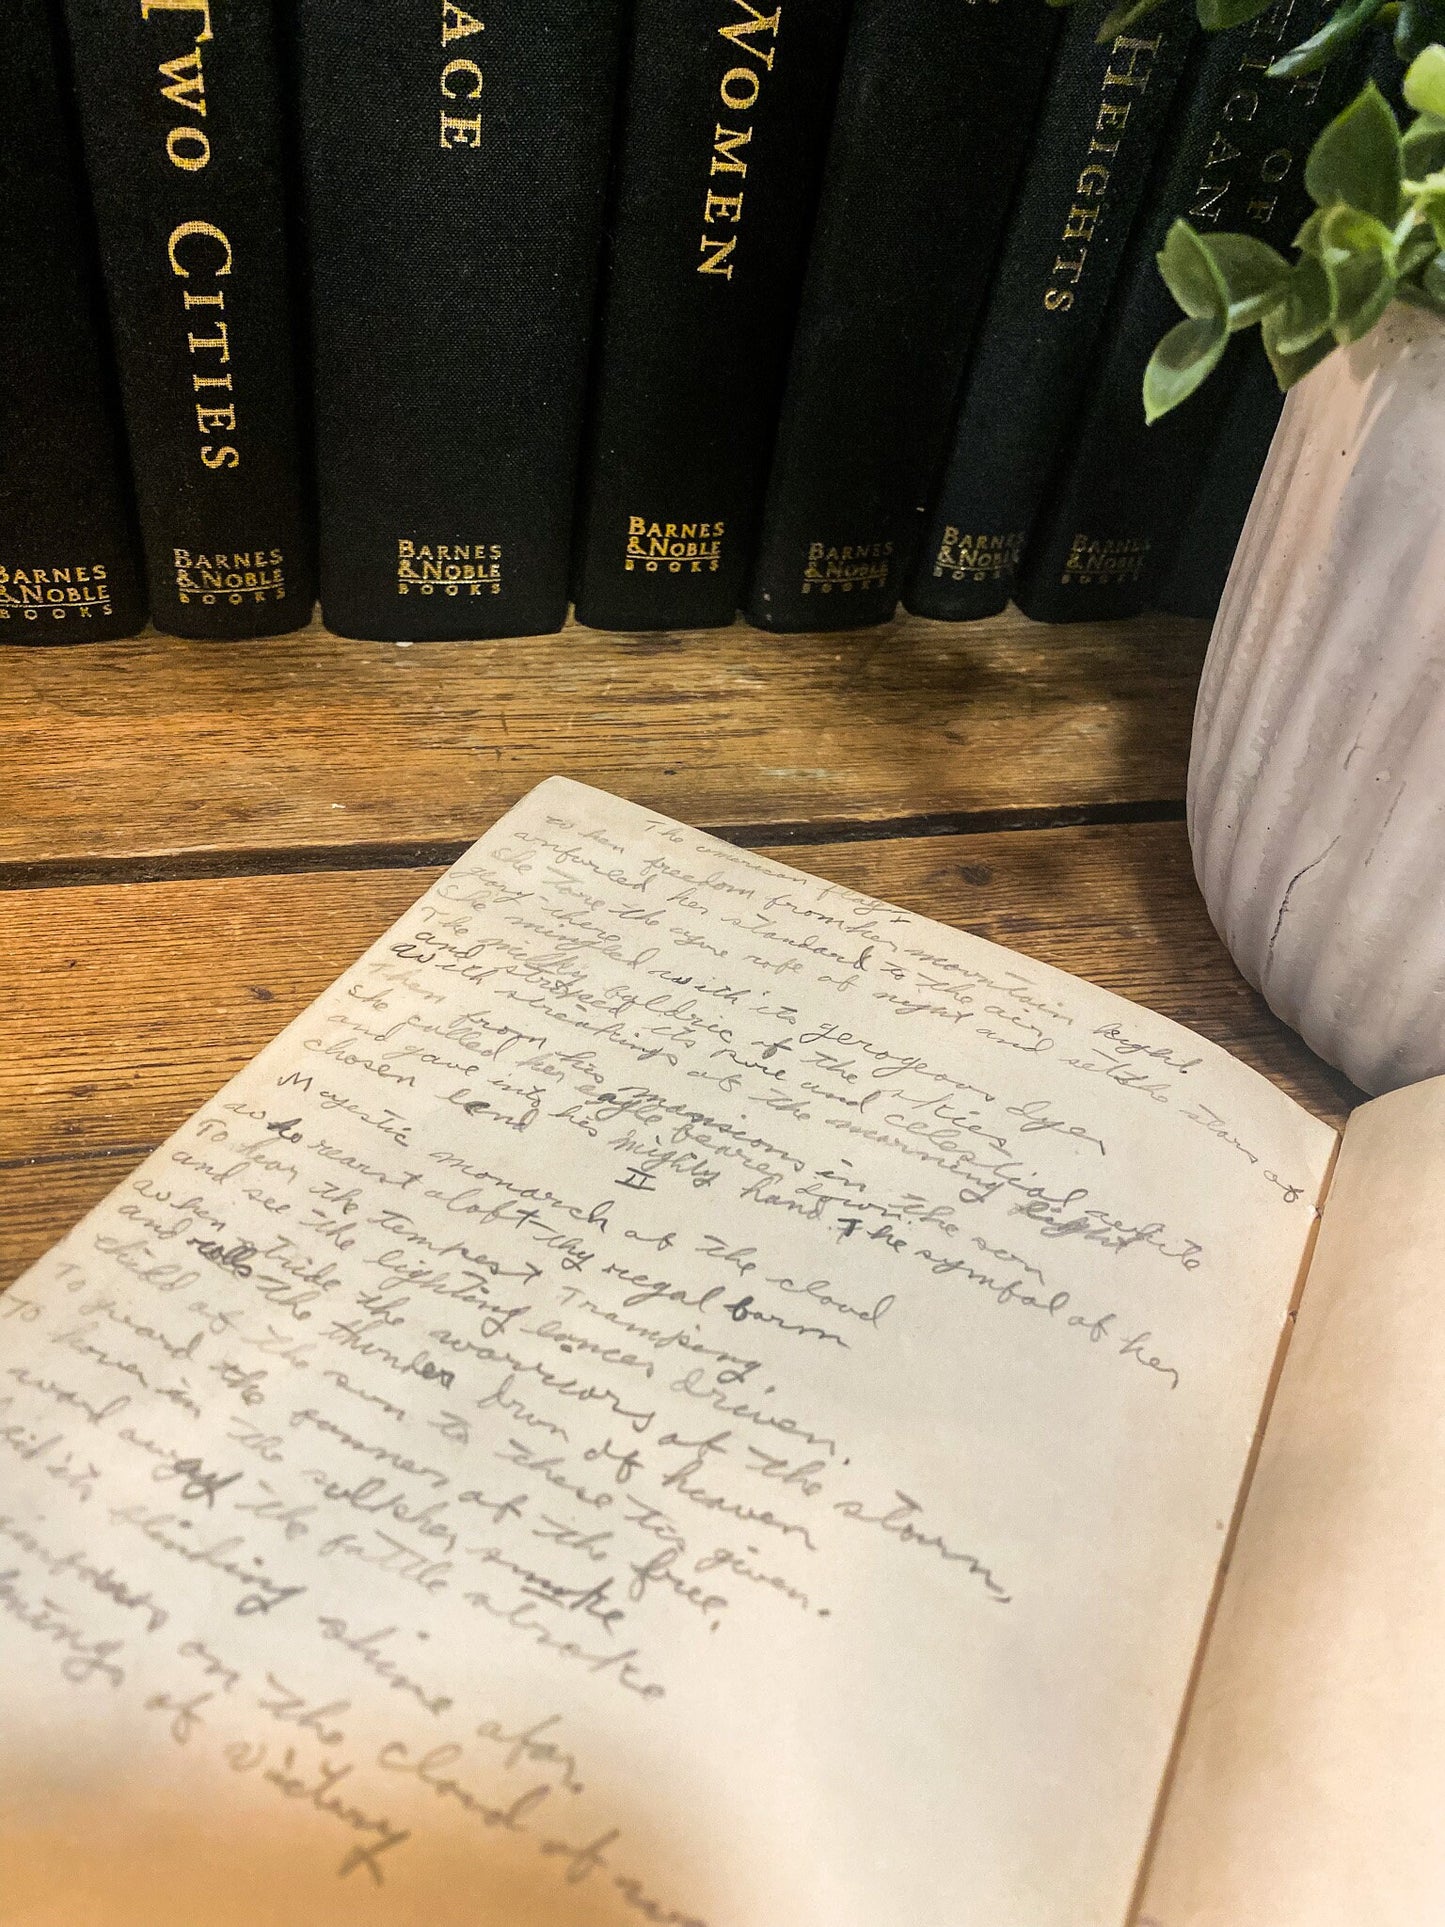 TWO CITIES
ACE
WOMEN
HEIGHTS
OF
ICAN
BARNES
& NOBLE
BOOKS
BARNES
& NOBLE
BOOKS
BARNES
& NOBLE
BOOKS
BARNES
& NOBLE
BOOKS
BARNES
& NOBLE
BOOKS
BARNES
& NOBLE
BOOKS
BARNES
The american flag
to her freedom from her mountain hight
unfurled her standard to the air
She tore the azure robe of night and set the stars of
glory there
She mingled with its gerogeous dyer
The milky baldric of the skies
and striped its pure and celestial white
with streakings of the morning light
Then from his mansion in the son
she called her eagle bearer down
and gave into his mighty hand. The symbol of her
chosen land
II
Majestic monarch of the cloud
who rearst aloft thy regal form
To hear the tempest Tramping
and see the lighting lances driven.
when stride the warriors of the storm,
and rolls the thunder drum of heaven
child of the sun to thee tis given.
To guard the banner of the free,
To hover in the sulpher smoke
ward away the battle stroke
bid its blinding shine afar
on the cloud of
of victory